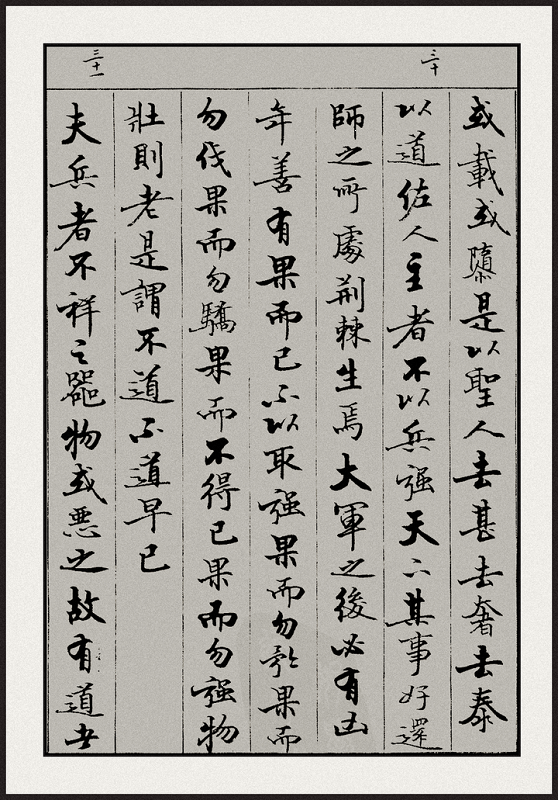 或載或隳是以聖人去甚去奢去泰
三十
以道佐人主者不以兵强天下其事好還
師之所處荊棘生焉大軍之後必有凶
年善有果而已不以取强果而勿矜果而
勿伐果而勿驕果而不得已果而勿强物
壯則老是謂不道不道早已
三十一
夫兵者不祥之器物或惡之故有道